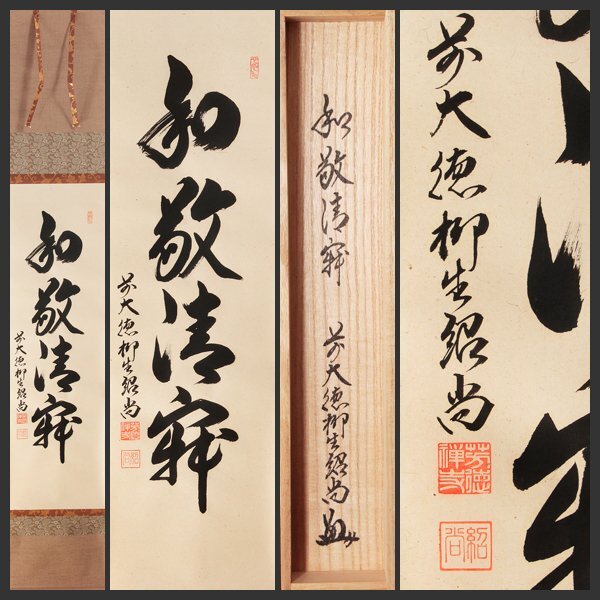 和敬清寂
前大徳柳生紹尚
和敬清寂
前大徳柳生紹尚
和敬清寂
前大徳柳生紹尚
前大徳柳生紹尚
芳徳禅寺
紹尚